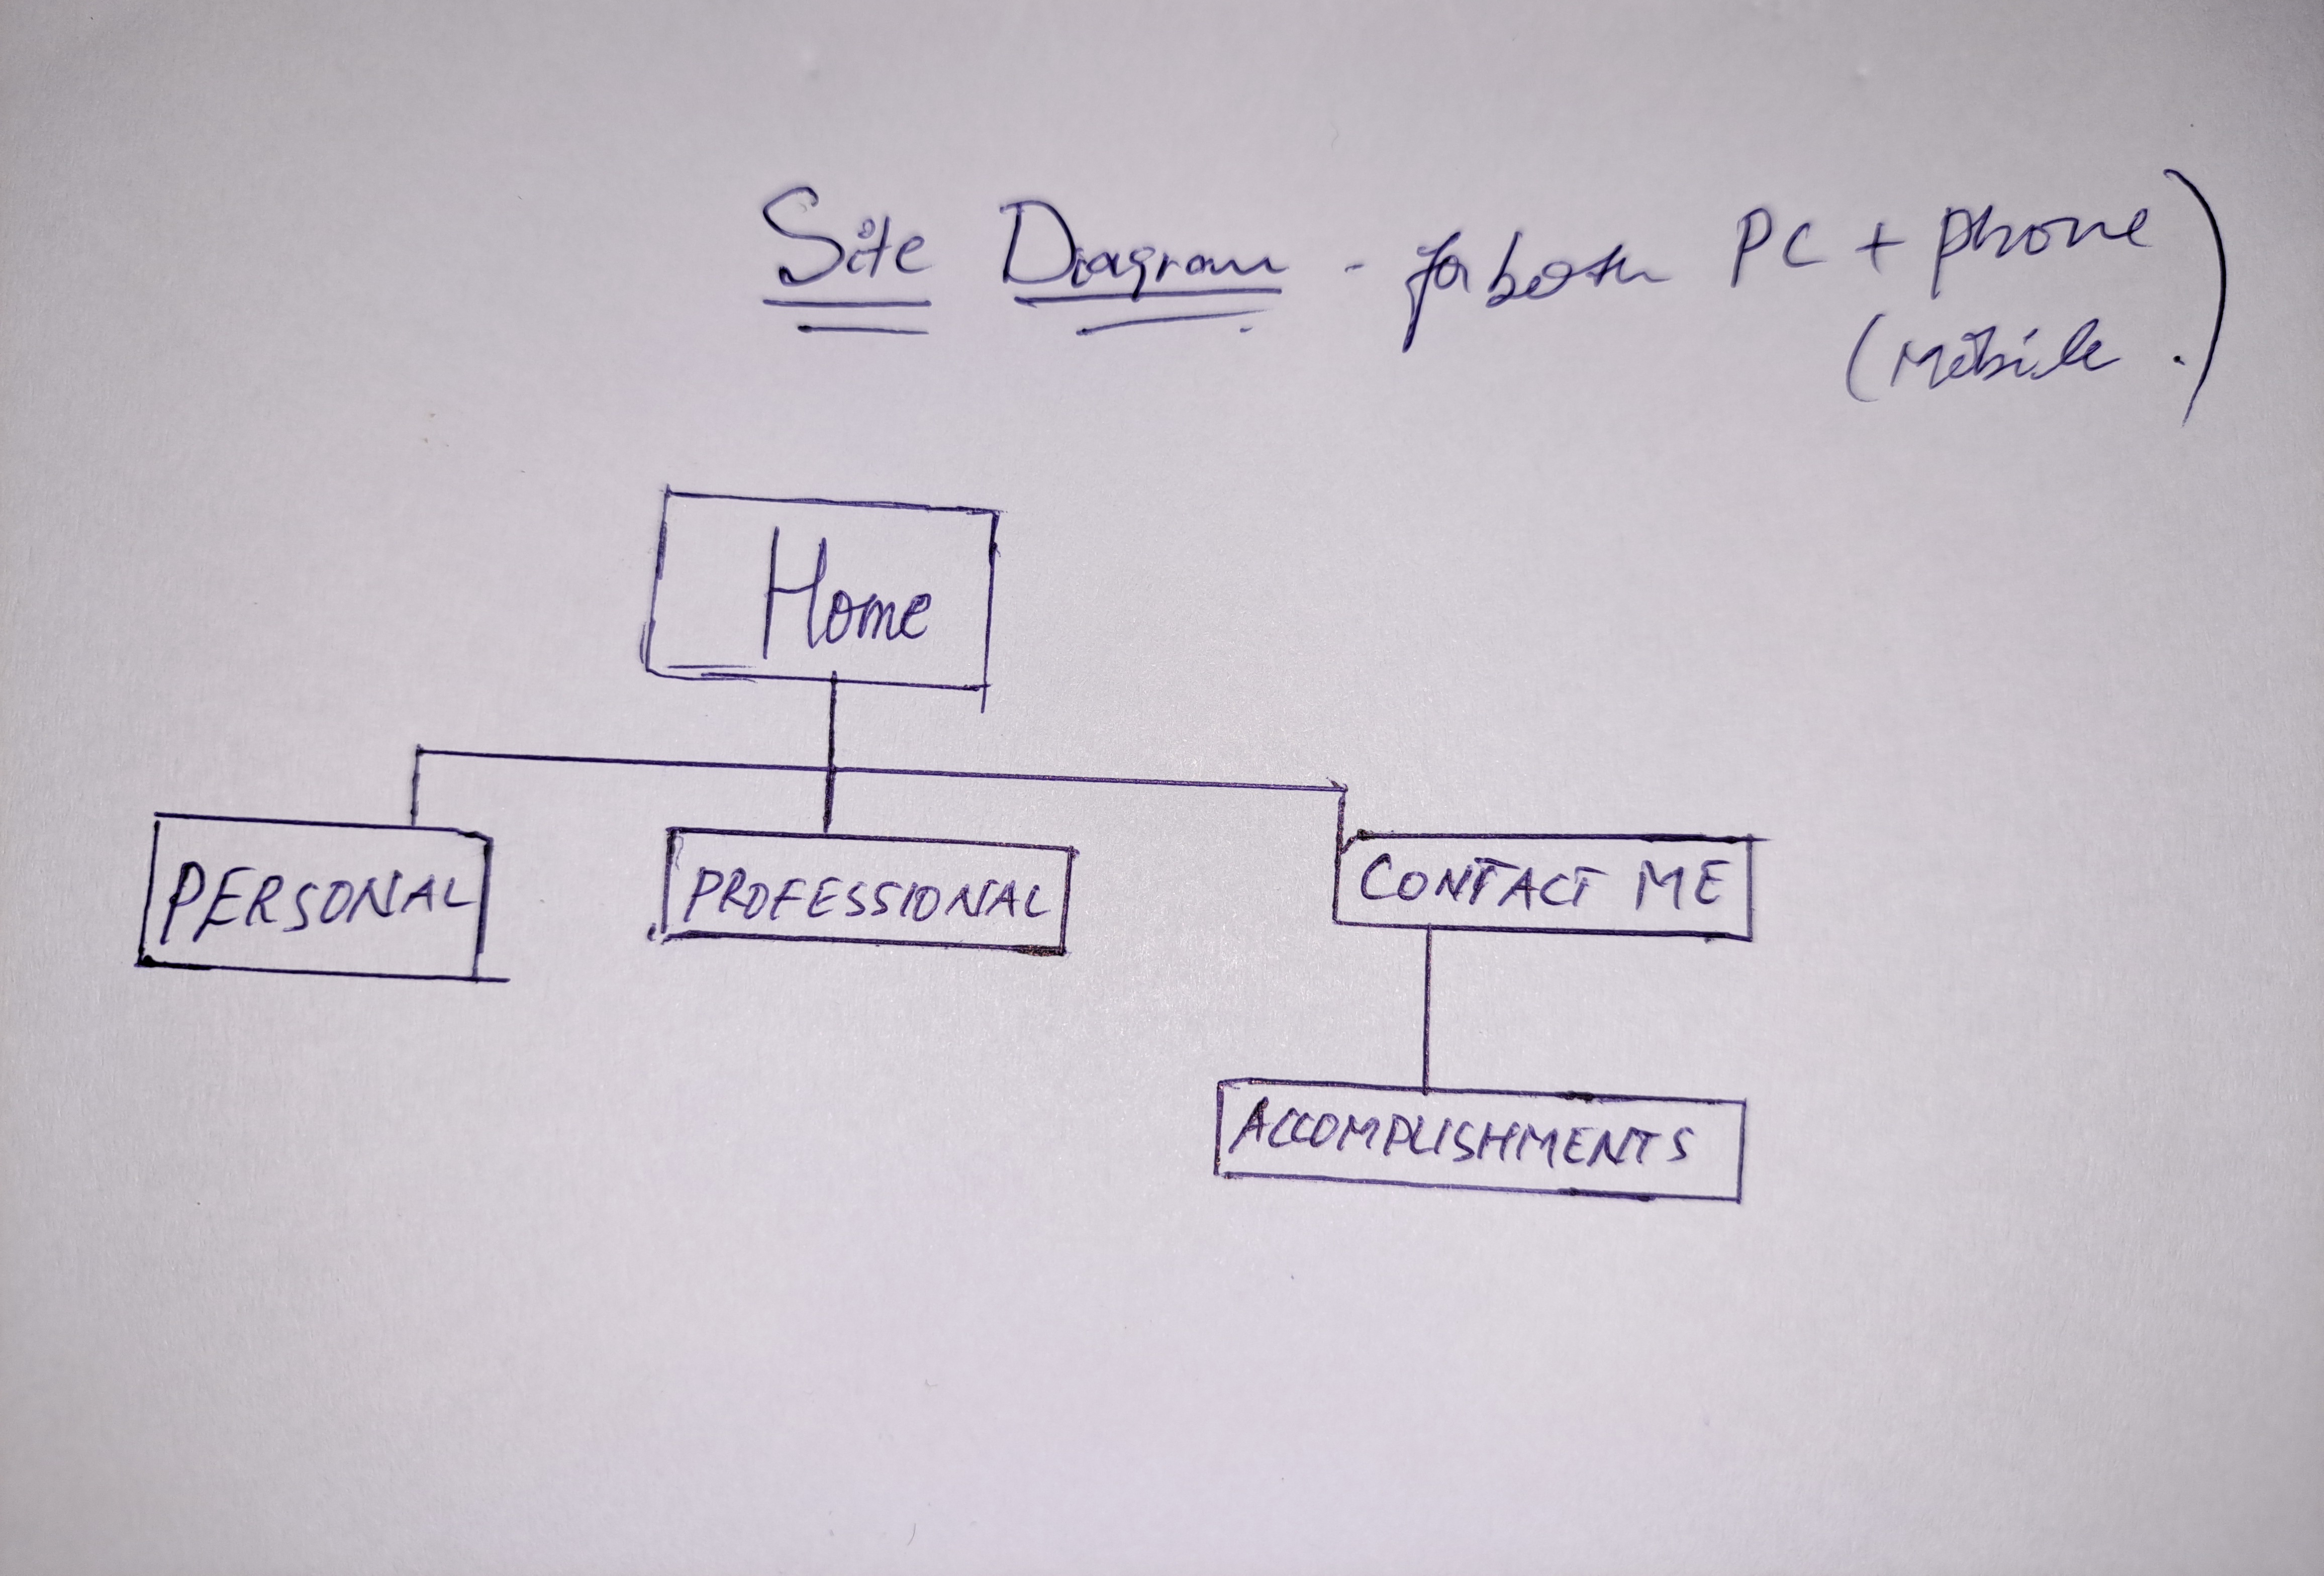 Site Diagram - for both PC + phone
(Mobile.)
Home
PERSONAL
PROFESSIONAL
CONTACT ME
ACCOMPLISHMENTS